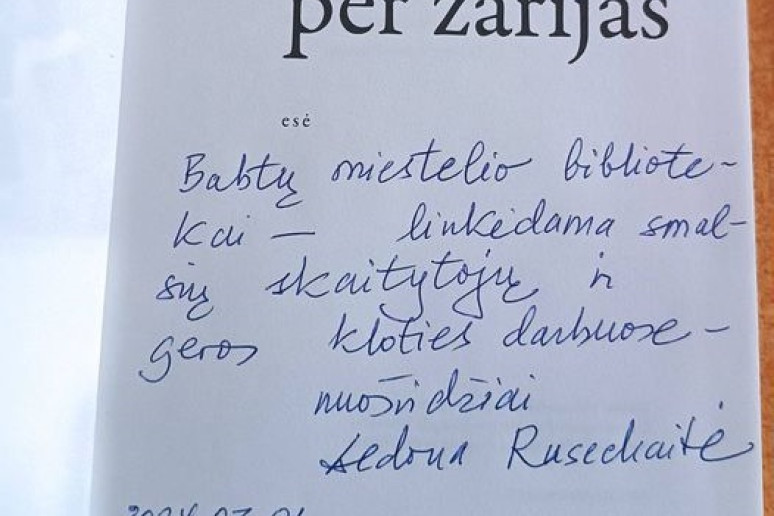 per žarijas
esė
Babtų miestelio bibliote-
kai — linkėdama smal-
sių skaitytojų ir
geros kloties darbuose –
nuoširdžiai
Aldona Ruseckaitė